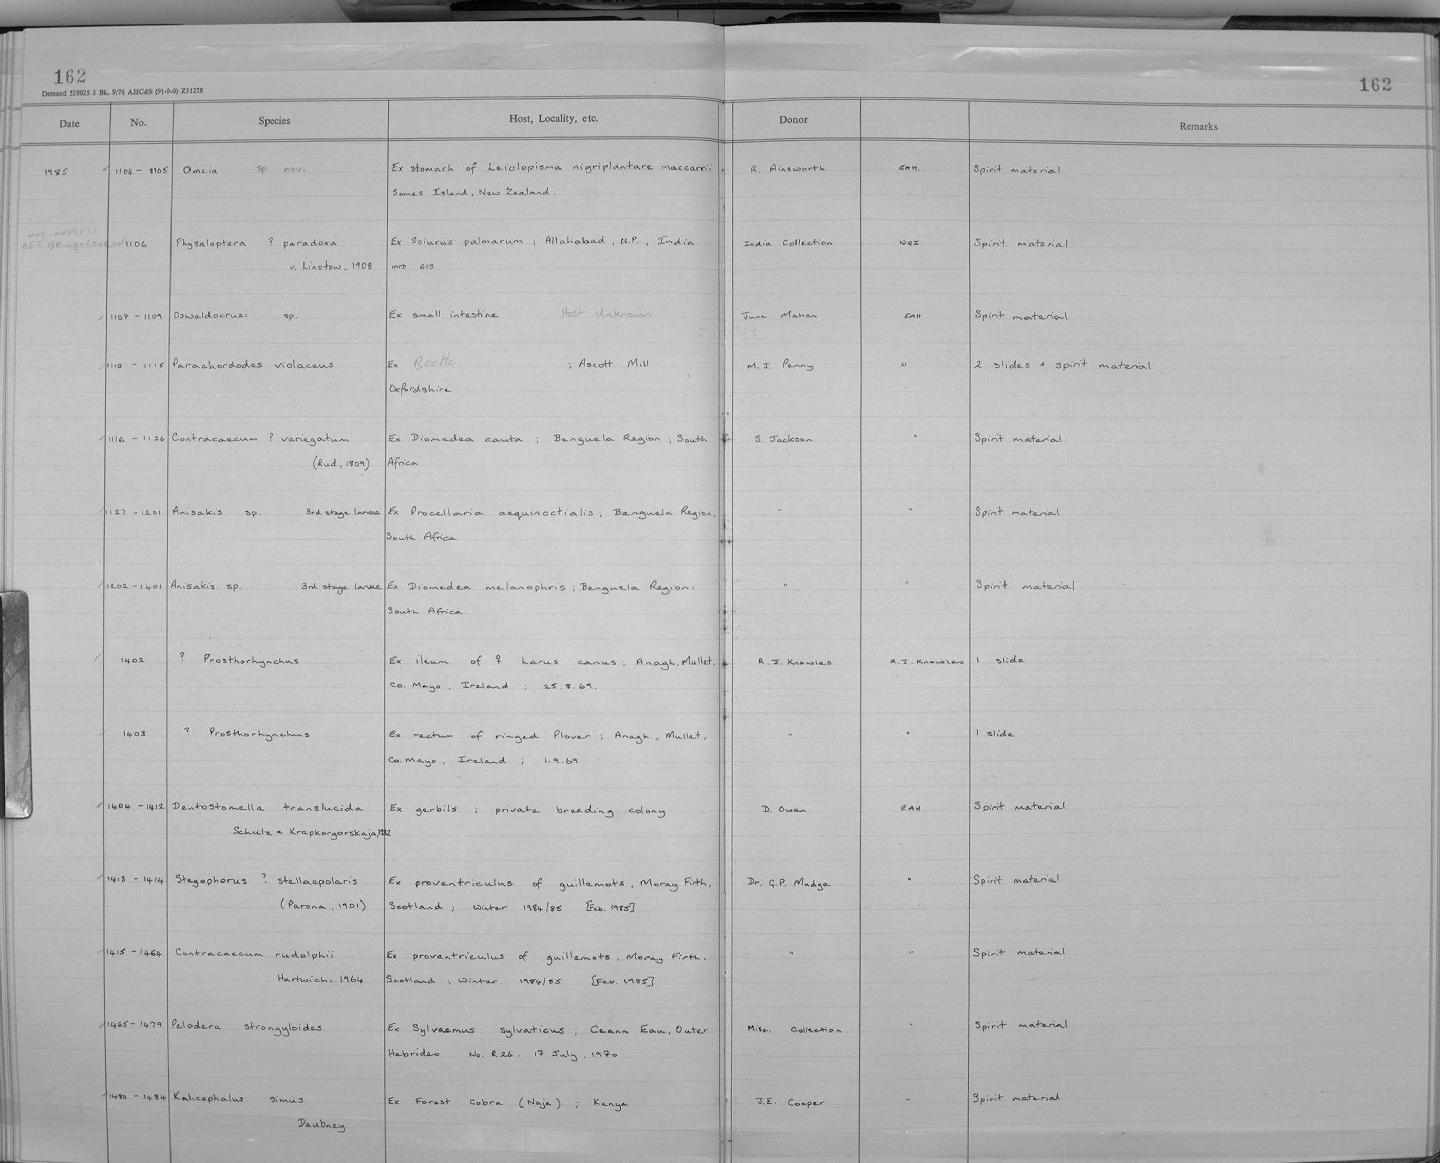 162
162
Demand 528025 1 Bk. 9/76 AHC&S (91-0-0) Z31278
Date No. Species Host, Locality, etc. Donor Remarks
1985 1104 - 1105 Omeia sp nov. Ex stomach of Leiolopisma nigriplantare maccanni R. Ainsworth EAH. Spirit material
Somes Island, New Zealand.
1106 Physaloptera ? paradoxa Ex Sciurus palmarum ; Allahabad, U.P., India India Collection Spirit material
v. Linstow, 1908 IND 613
1107 - 1109 Oswaldocruzi sp. Ex small intestine Host Unknown June Mahon EAH Spirit material
1110 - 1115 Parachordodes violaceus Ex Beetle ; Ascott Mill M.J. Penny " 2 slides + spirit material
Oxfordshire.
1116 - 1126 Contracaecum ? variegatum Ex Diomedea cauta ; Benguela Region ; South S. Jackson " Spirit material
(Rud, 1809) Africa
1127 - 1201 Anisakis sp. 3rd stage larvae Ex Procellaria aequinoctialis ; Benguela Region, " " Spirit material
South Africa
1202 - 1401 Anisakis sp. 3rd stage larvae Ex Diomedea melanophris ; Benguela Region, " " Spirit material
South Africa.
1402 ? Prosthorhynchus Ex ileum of ♀ Larus canus ; Anagh, Mullet, R.J. Knowles R.J. Knowles 1 slide
Co. Mayo, Ireland ; 25.8.69.
1403 ? Prosthorhynchus Ex rectum of ringed Plover ; Anagh, Mullet, " " 1 slide
Co. Mayo, Ireland ; 1.9.69
1404 - 1412 Dentostomella translucida Ex gerbils ; private breeding colony D. Owen EAH Spirit material
Schulz & Krapkorgorskaja, 1932
1413 - 1414 Stegophorus ? stellaepolaris Ex proventriculus of guillemots, Moray Firth, Dr. G.P. Mudge " Spirit material
(Parona, 1901) Scotland ; Winter 1984/85 [Feb. 1985]
1415 - 1464 Contracaecum rudolphii Ex proventriculus of guillemots, Moray Firth, " " Spirit material
Hartwich, 1964 Scotland ; Winter 1984/85 [Feb. 1985]
1465 - 1479 Pelodera strongyloides Ex Sylvaemus sylvaticus ; Ceann Ear, Outer Misc. Collection " Spirit material
Hebrides No. R26. 17 July, 1970
1480 - 1484 Kalicephalus simus Ex Forest Cobra (Naja) ; Kenya J.E. Cooper " Spirit material
Daubney